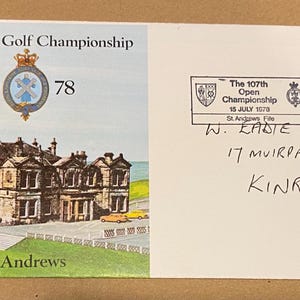 Golf Championship
78
Andrews
The 107th
Open
Championship
15 JULY 1978
St. Andrews Fife
W. EADIE
17 MUIRPA
KINR